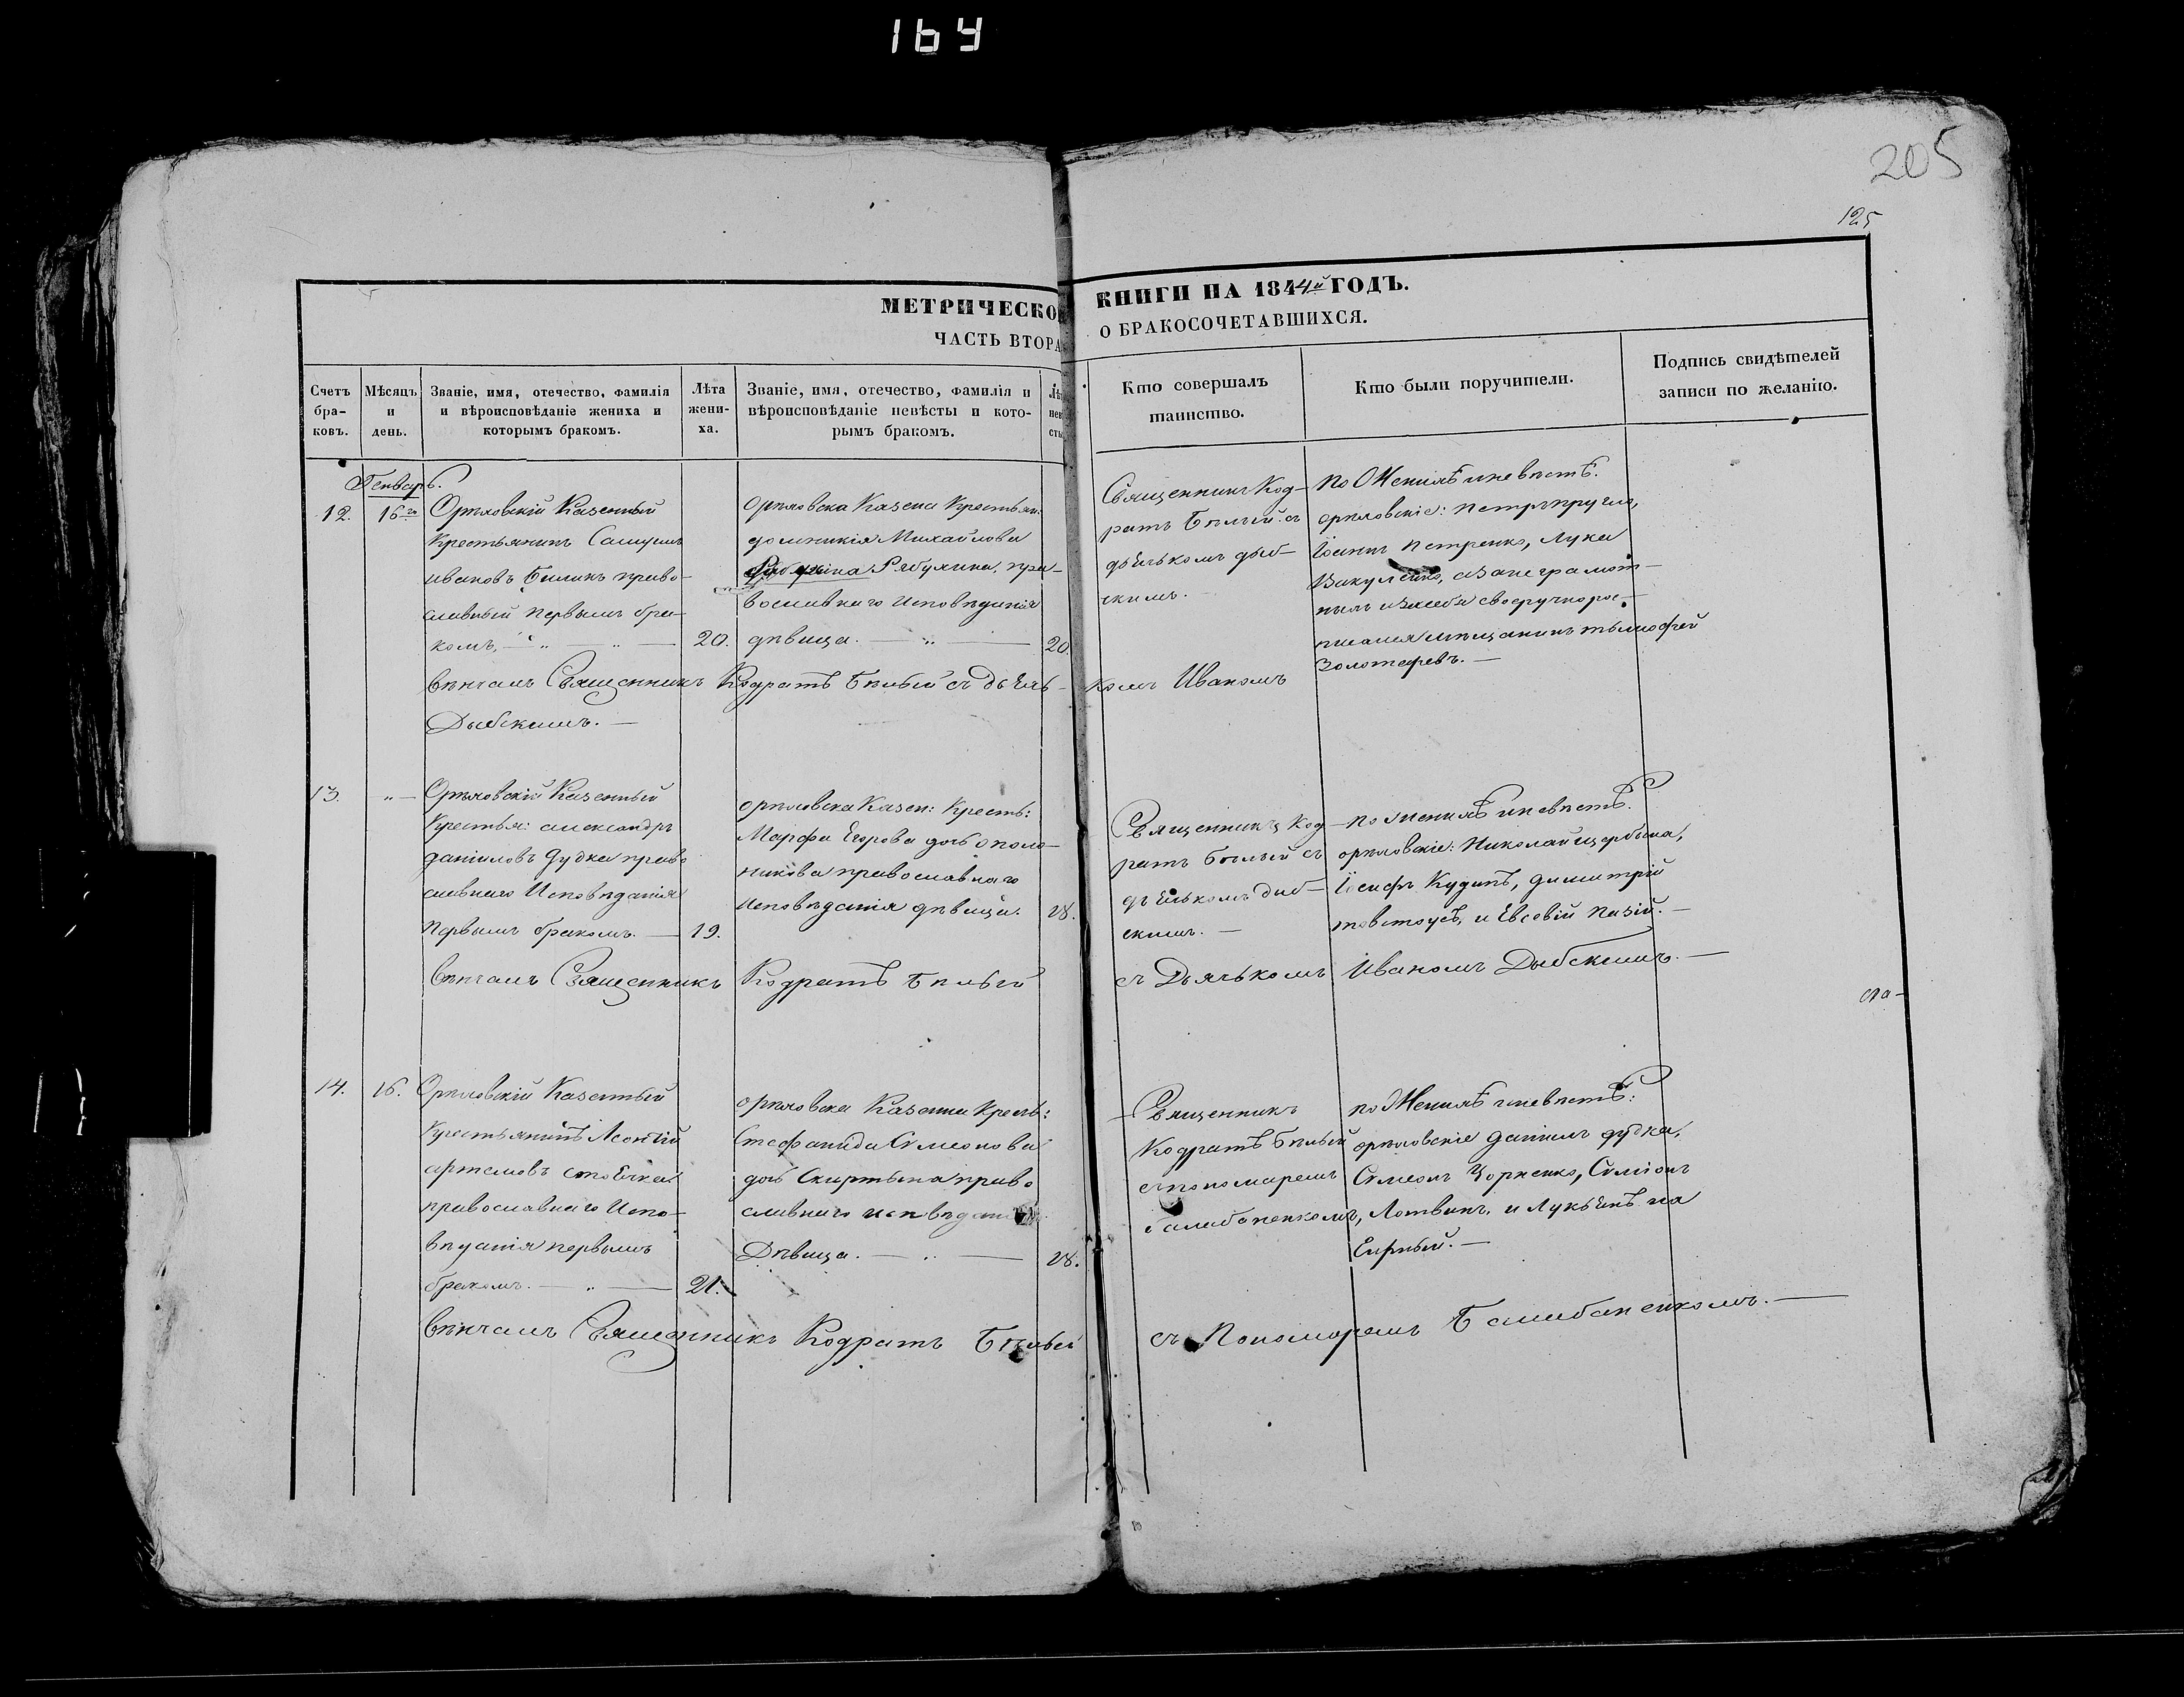 164
205
125
МЕТРИЧЕСКО КНИГИ НА 1844й ГОДЪ.
ЧАСТЬ ВТОРА О БРАКОСОЧЕТАВШИХСЯ.
Счетъ бра-ковъ.
Мѣсяцъ и день.
Званіе, имя, отечество, фамилія и вѣроисповѣданіе жениха и которымъ бракомъ.
Лѣта жени-ха.
Званіе, имя, отечество, фамилія и вѣроисповѣданіе невѣсты и кото-рымъ бракомъ.
Кто совершалъ таинство.
Кто были поручители.
Подпись свидѣтелей записи по желанію.
Генварь.
12.
16го
Орѣловскій Казенный
Крестьянинъ Самуилъ
Ивановъ Биликъ право-
славный первымъ бра-
комъ,
20.
Орѣловска Казена Крестьян:
домникія Михайлова
Рябухина, пра-
вославнаго Исповѣданія
дѣвица.
20.
Священникъ Код-
ратъ Бѣлый съ
дьячкомъ дыб-
скимъ.
По Женихѣ и невѣстѣ.
орѣловскіе: петръ пругло,
Іоаннъ петренко, Лука
Вакуленко, а за неграмот-
ныхъ и за себя своеручно рос-
писался мѣщанинъ тымофей
Золотаревъ.
Вѣнчалъ Священникъ Кодратъ Бѣлый съ Дьяч-
комъ Иваномъ
Дыбскимъ.
13.
Орѣловскій Казенный
Крестья: александръ
даниловъ Дудка право
славнаго Исповѣданія
Первымъ бракомъ.
19.
орѣловска Казен: Кресть:
Марфа Егорова дочь ополо-
никова православнаго
Исповѣданія дѣвица.
18.
Священникъ Код-
ратъ бѣлый съ
дьячкомъ дыб-
скимъ.
по женихѣ и невѣстѣ.
орѣловскіе: Николай щербына,
Іосифъ Кудинъ, димитрій
товстоусъ, и Евсовій Пазій.
Вѣнчалъ Священникъ Кодратъ Бѣлый
съ Дьячькомъ Иваномъ Дыбскимъ.
14.
16.
Орѣловскій Казенный
Крестьянинъ Леонтій
артемовъ
православнаго Испо-
вѣданія первымъ
бракомъ.
21.
орѣловска Казенна Крест:
Стефанида Симеонова
дочь Скиртына право
славнаго исповѣданія
Дѣвица.
18.
Священникъ
Кодратъ бѣлый
съ пономаремъ
балабаненкомъ,
по Женихѣ и невѣстѣ:
орѣловскіе даніилъ дудка,
Симеонъ Чорненко, Симіонъ
Лотвинъ, и Лукьянъ на
Вѣнчалъ Священникъ Кодратъ Бѣлый
съ Пономаремъ Балабаненкомъ.